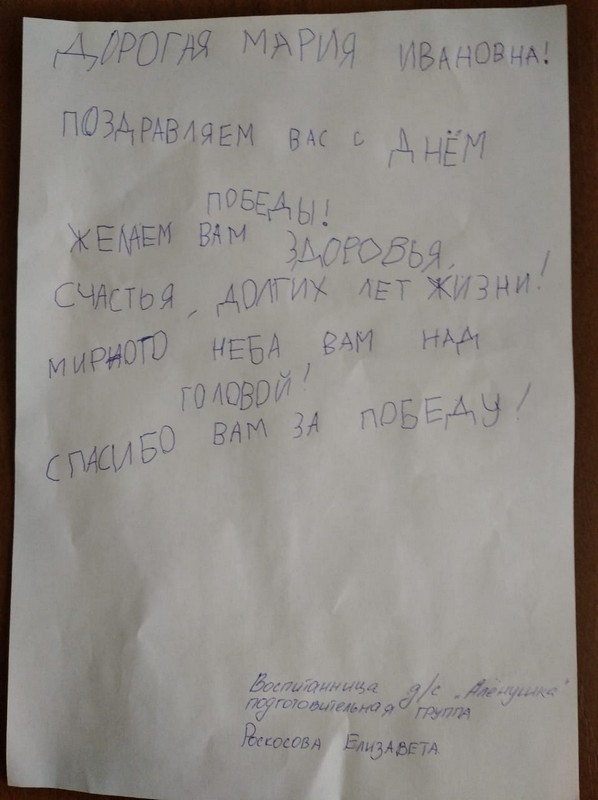 ДОРОГАЯ МАРИЯ ИВАНОВНА!
ПОЗДРАВЛЯЕМ ВАС С ДНЁМ
ПОБЕДЫ!
ЖЕЛАЕМ ВАМ ЗДОРОВЬЯ,
СЧАСТЬЯ, ДОЛГИХ ЛЕТ ЖИЗНИ!
МИРНОГО НЕБА ВАМ НАД
ГОЛОВОЙ!
СПАСИБО ВАМ ЗА ПОБЕДУ!
Воспитанница д/с „Алёнушка"
подготовительная группа
Роскосова Елизавета